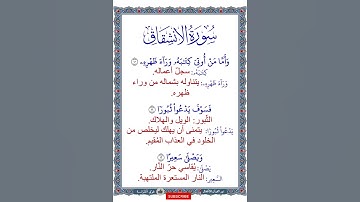 سُورَةُ الِانْشِقَاقِ
وَأَمَّا مَنْ أُوتِيَ كِتَابَهُۥ وَرَآءَ ظَهْرِهِۦ ١٠
كِتَابَهُ: سجلّ أعماله.
وَرَآءَ ظَهْرِهِ: يتناوله بشماله من وراء
ظهره.
فَسَوْفَ يَدْعُوا۟ ثُبُورًا ١١
الثُّبور: الويل والهلاك.
يَدْعُوا ثُبُورًا: يتمنى أن يهلك ليخلص من
الخلود في العذاب المُقيم.
وَيَصْلَىٰ سَعِيرًا ١٢
يَصْلَى: يُقاسي حرّ النّار.
السَّعِير: النار المستعرة الملتهبة.
SUBSCRIBE